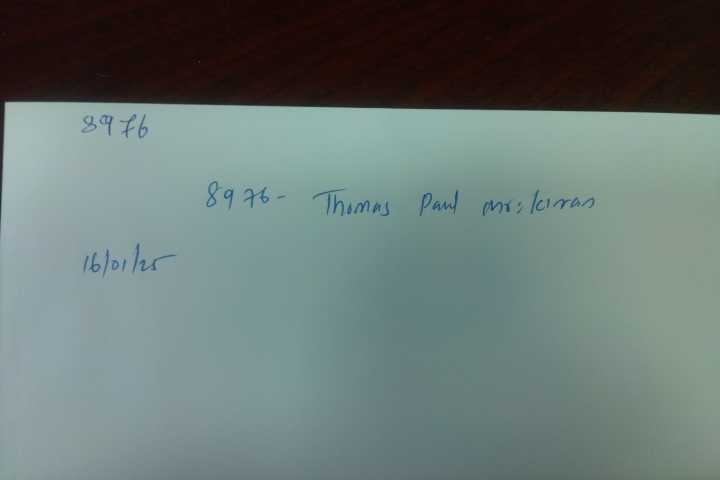 8976
8976- Thomas Paul Mr: Kiran
16/01/25